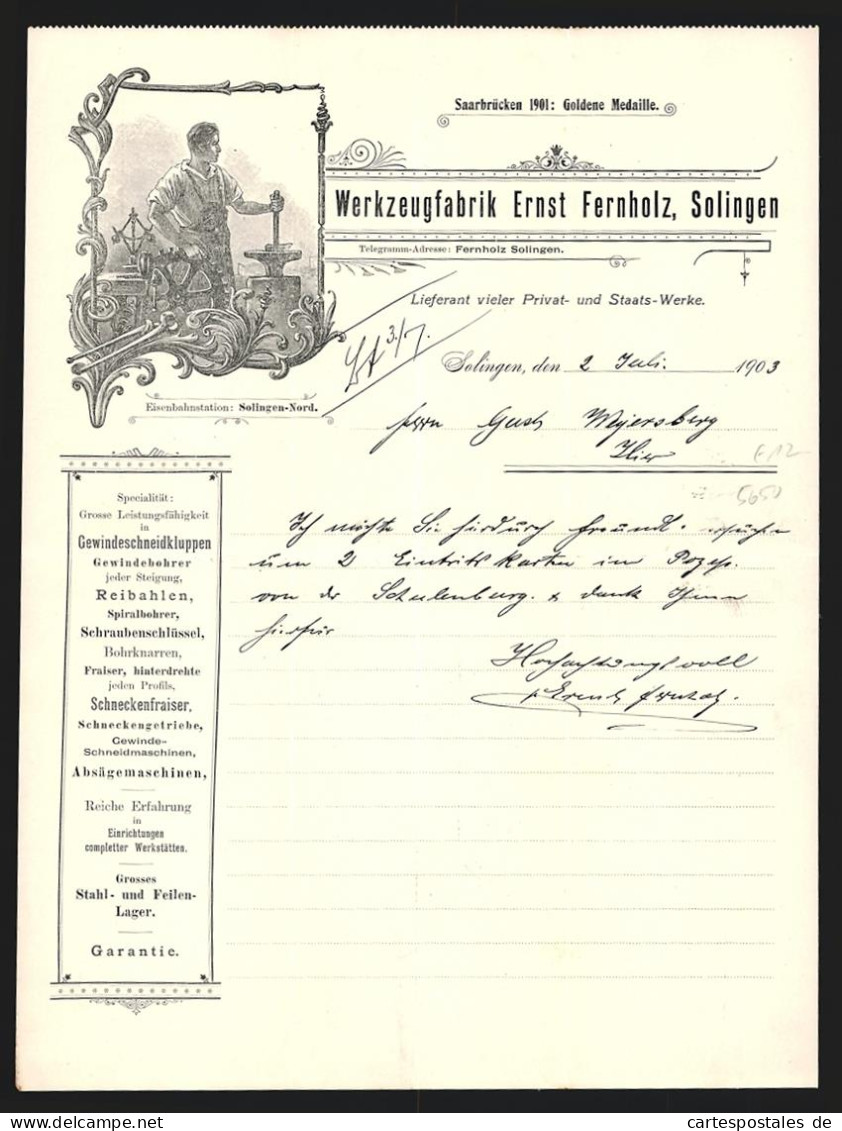 Saarbrücken 1901: Goldene Medaille.
Werkzeugfabrik Ernst Fernholz, Solingen
Telegramm-Adresse: Fernholz Solingen.
Lieferant vieler Privat- und Staats-Werke.
3./7.
Solingen, den 2 Juli. 1903
Eisenbahnstation: Solingen-Nord.
Herrn Gust Weyersberg
Hier
E12
5650
Ich möchte Sie hierdurch freundl. ersuchen
um 2 Eintrittskarten im
von der Schulenburg. & dank Ihnen
hierfür
Hochachtungsvoll
Ernst Fernholz.
Specialität:
Grosse Leistungsfähigkeit
in
Gewindeschneidkluppen
Gewindebohrer
jeder Steigung,
Reibahlen,
Spiralbohrer,
Schraubenschlüssel,
Bohrknarren,
Fraiser, hinterdrehte
jeden Profils,
Schneckenfraiser,
Schneckengetriebe,
Gewinde-
Schneidmaschinen,
Absägemaschinen,
Reiche Erfahrung
in
Einrichtungen
completter Werkstätten.
Grosses
Stahl- und Feilen-
Lager.
Garantie.
cartespostales de